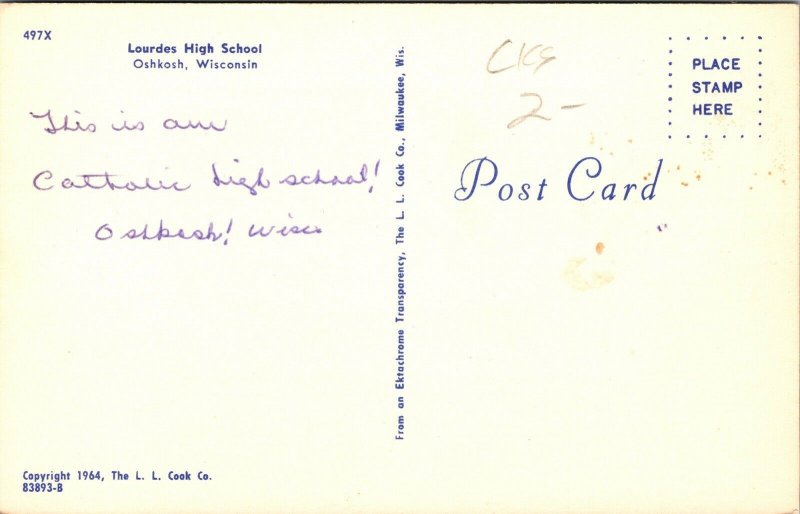 497X
Lourdes High School
Oshkosh, Wisconsin
This is our
Catholic high school!
Oshkosh! Wisc.
From an Ektachrome Transparency, The L. L. Cook Co., Milwaukee, Wis.
2-
PLACE
STAMP
HERE
Post Card
Copyright 1964, The L. L. Cook Co.
83893-B